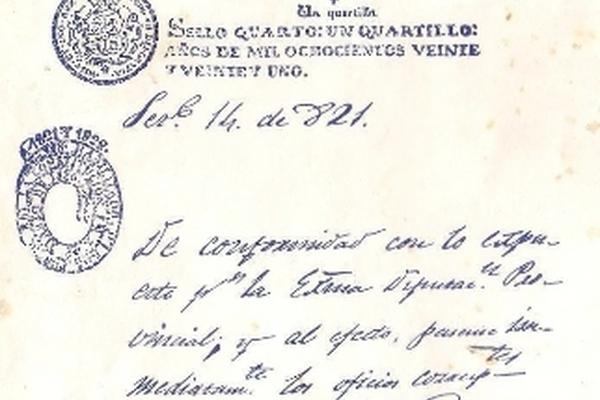 Un quartillo
SELLO QUARTO: UN QUARTILLO:
AÑOS DE MIL OCHOCIENTOS VEINTE
Y VEINTE Y UNO.
14. de 821.
De conformidad con lo expu-
esto pr la Exma Diputacn Pro-
vincial; y al efecto, pasense in-
mediatamte los oficios corresptes